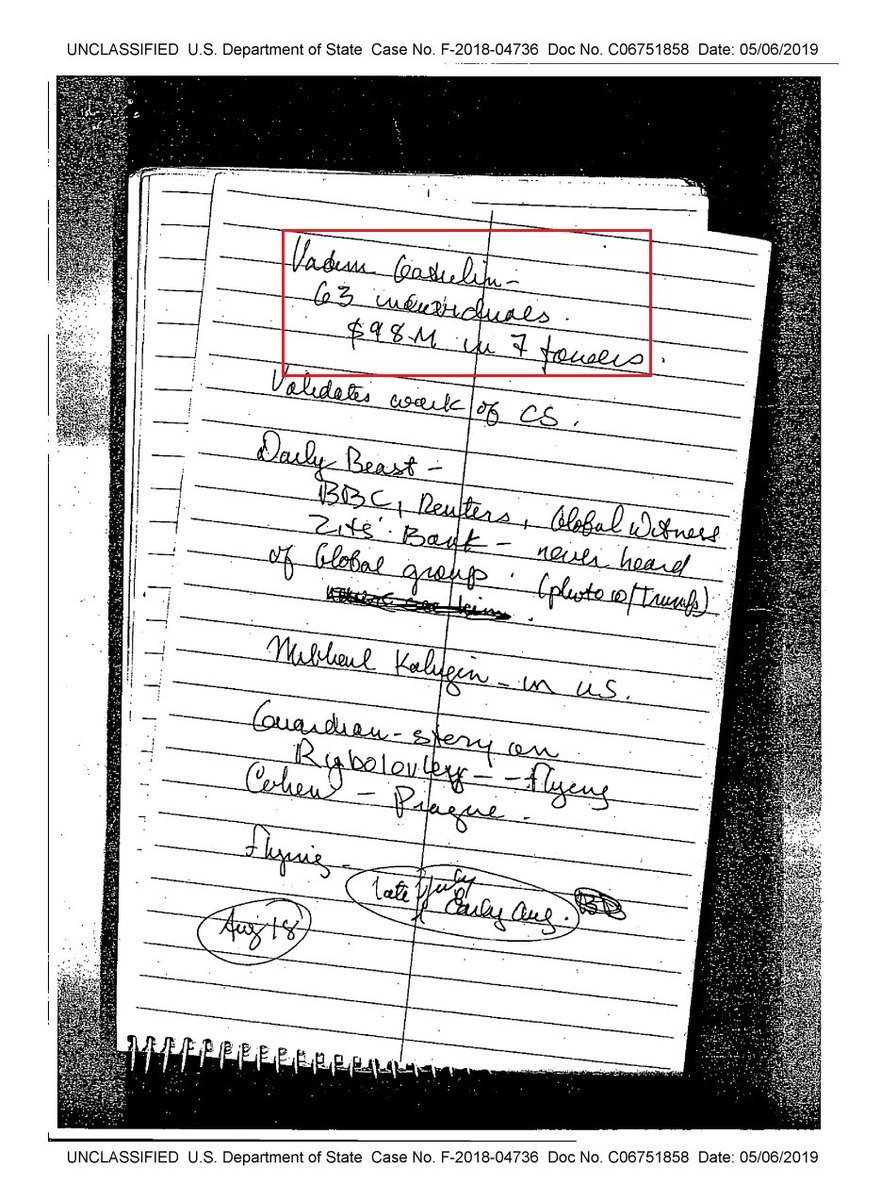 UNCLASSIFIED U.S. Department of State Case No. F-2018-04736 Doc No. C06751858 Date: 05/06/2019
Vadim
63 individuals.
$98M in 7 towers.
Validates work of CS.
Daily Beast –
BBC, Reuters, Global Witness
Bank – never heard
of Global group. (photo w/Trumps)
Kalugin – in US.
Guardian – story on
Rybolovlev – – flying
Cohen – Prague.
Flying –
late July
Early Aug.
Aug 18
UNCLASSIFIED U.S. Department of State Case No. F-2018-04736 Doc No. C06751858 Date: 05/06/2019